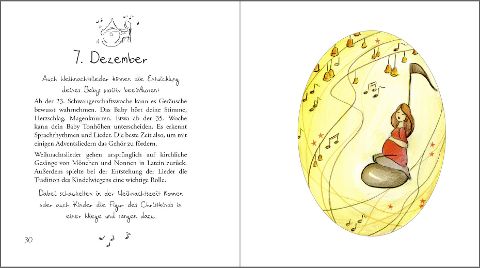 7. Dezember
Auch Weihnachtslieder können die Entwicklung
deines Babys positiv beeinflussen!
Ab der 23. Schwangerschaftswoche kann es Geräusche
bewusst wahrnehmen. Das Baby hört deine Stimme,
Herzschlag, Magenknurren. Etwa ab der 35. Woche
kann dein Baby Tonhöhen unterscheiden. Es erkennt
Sprachrhythmen und Lieder. Die beste Zeit also, um mit
einigen Adventsliedern das Gehör zu fördern.
Weihnachtslieder gehen ursprünglich auf kirchliche
Gesänge von Mönchen und Nonnen in Latein zurück.
Außerdem spielte bei der Entstehung der Lieder die
Tradition des Kindelwiegens eine wichtige Rolle.
Dabei schaukelten in der Weihnachtszeit Nonnen
oder auch Kinder die Figur des Christkinds in
einer Wiege und sangen dazu.
30